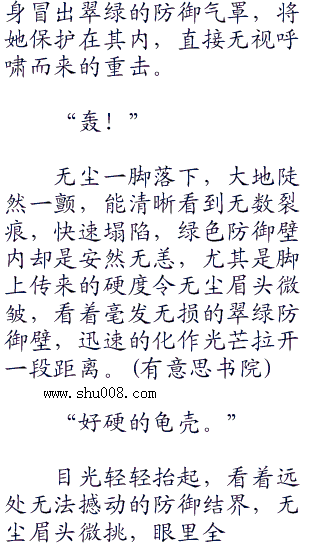 身冒出翠绿的防御气罩，将
她保护在其内，直接无视呼
啸而来的重击。
“轰！”
无尘一脚落下，大地陡
然一颤，能清晰看到无数裂
痕，快速塌陷，绿色防御壁
内却是安然无恙，尤其是脚
上传来的硬度令无尘眉头微
皱，看着毫发无损的翠绿防
御壁，迅速的化作光芒拉开
一段距离。(有意思书院)
www.shu008.com
“好硬的龟壳。”
目光轻轻抬起，看着远
处无法撼动的防御结界，无
尘眉头微挑，眼里全